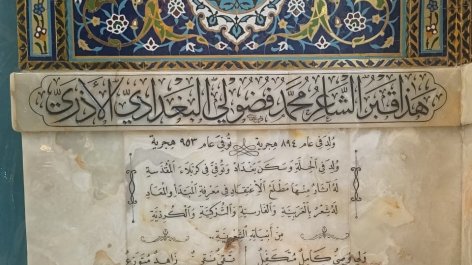 هذا قبر الشاعر محمد فضولي البغدادي الأذري
ولد في عام ٨٩٤ هجرية توفي عام ٩٥٣ هجرية
ولد في الحلة وسكن بغداد وتوفي في كربلاء المقدسة
له آثار منها مطلع الاعتقاد في معرفة المبدأ والمعاد
له شعر بالعربية والفارسية والتركية والكردية
من أبياته الشعرية
ولي وصي كامل متكفل نقي تقي زاهد متورع